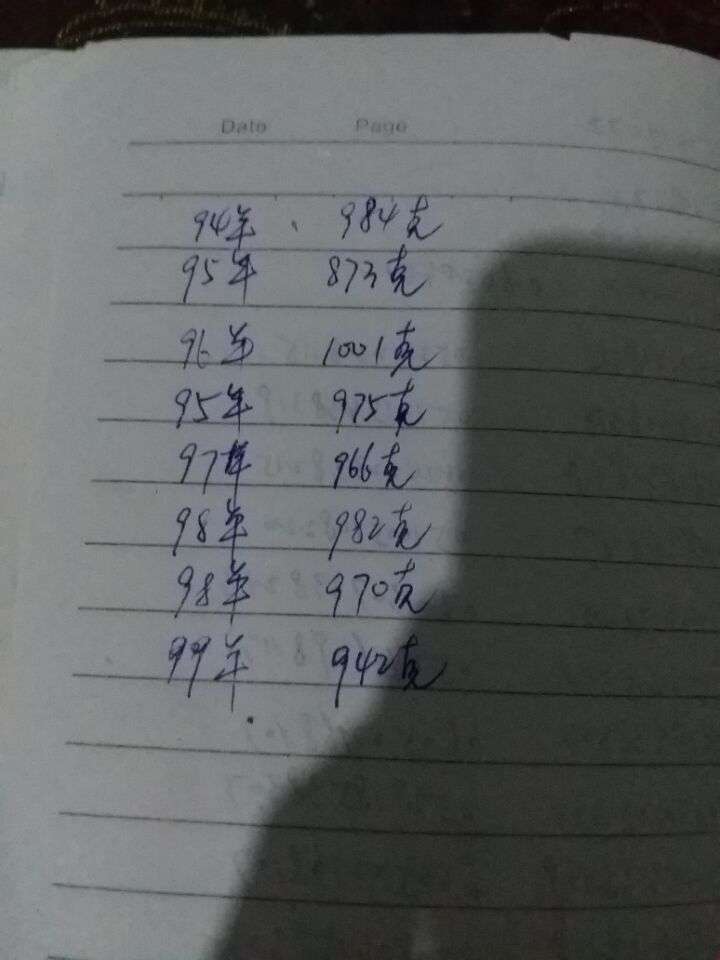 Date Page
94年 984克
95年 873克
96年 1001克
95年 975克
97年 966克
98年 982克
98年 970克
99年 942克